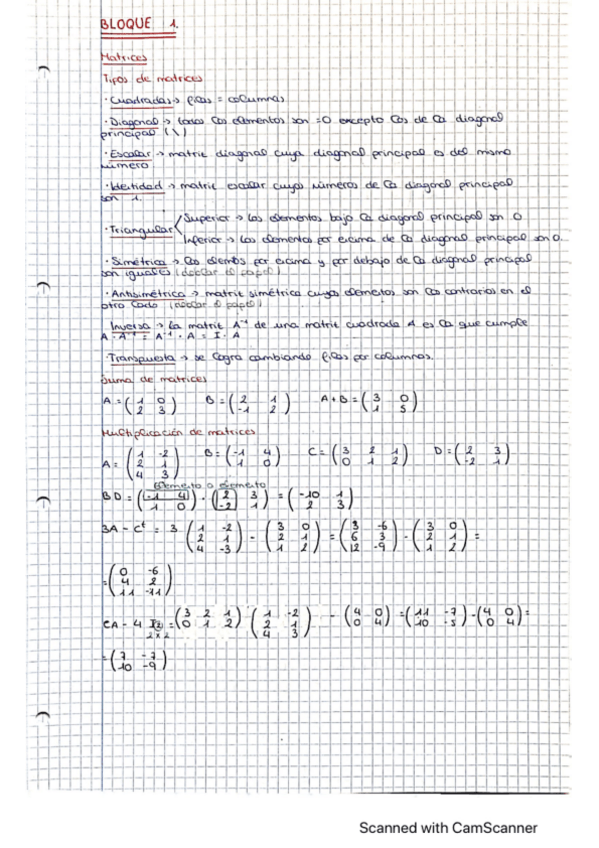 BLOQUE 1.
Matrices
Tipos de matrices
· Cuadradas → filas = columnas
· Diagonal → todos los elementos son = 0 excepto los de la diagonal
principal (\)
· Escalar → matriz diagonal cuya diagonal principal es del mismo
número
· Identidad → matriz escalar cuyos números de la diagonal principal
son 1.
· Triangular < Superior → los elementos bajo la diagonal principal son 0
Inferior → los elementos por encima de la diagonal principal son 0.
· Simétrica → los elemtos por encima y por debajo de la diagonal principal
son iguales (doblar el papel)
· Antisimétrica → matriz simétrica cuyos elemetos son los contrarios en el
otro lado (doblar el papel)
· Inversa → La matriz A⁻¹ de una matriz cuadrada A es la que cumple
A · A⁻¹ = A⁻¹ · A = I · A
· Transpuesta → se logra cambiando filas por columnas.
Suma de matrices
A = (1 0 / 2 3) B = (2 1 / -1 2) A + B = (3 0 / 1 5)
Multiplicación de matrices
A = (1 -2 / 2 1 / 4 3) B = (-1 4 / 1 0) C = (3 2 1 / 0 1 2) D = (2 3 / -2 1)
Elemento a elemento
BD = (-1 4 / 1 0) · (2 3 / -2 1) = (-10 1 / 2 3)
3A - Cᵗ = 3 (1 -2 / 2 1 / 4 -3) - (3 0 / 2 1 / 1 2) = (3 -6 / 6 3 / 12 -9) - (3 0 / 2 1 / 1 2) =
= (0 -6 / 4 2 / 11 -11)
CA - 4 I₂ = (3 2 1 / 0 1 2) (1 -2 / 2 1 / 4 3) - (4 0 / 0 4) = (11 -7 / 10 -5) - (4 0 / 0 4) =
2x2
= (7 -7 / 10 -9)
Scanned with CamScanner